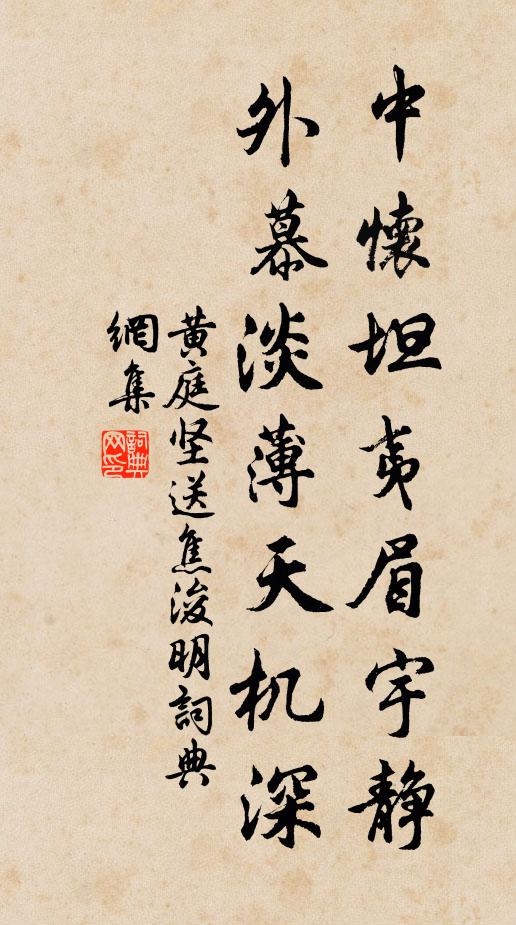 中懷坦夷眉宇静
外慕淡薄天机深
黄庭坚送焦浚明詞典
網集
詞典网印